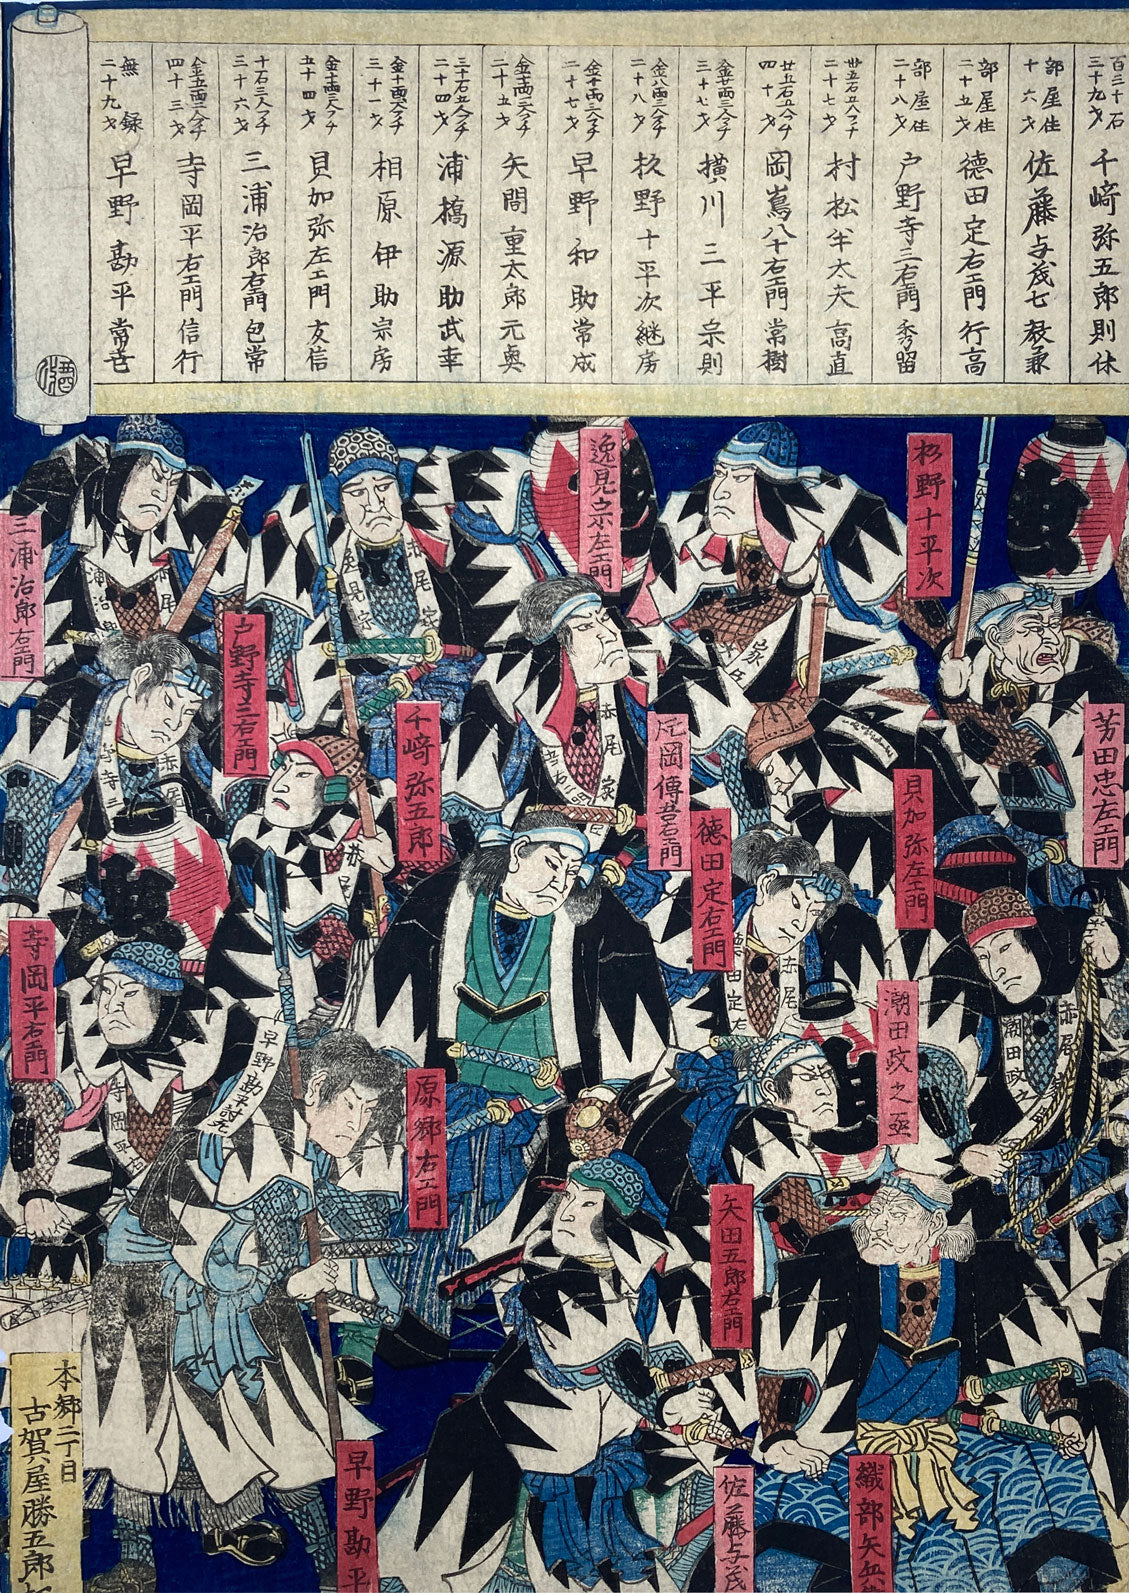 百三十石
三十九才
千﨑弥五郎則休
部屋住
十六才
佐藤与茂七教兼
部屋住
二十五才
德田定右エ門行高
部屋住
二十八才
戸野寺三右エ門秀留
廿五石五人フチ
二十七才
村松半大夫高直
廿五石五人フチ
四十才
岡嶌八十右エ門常樹
金廿両三人フチ
三十七才
横川三平宗則
金八両三人フチ
二十八才
杦野十平次継房
金十両三人フチ
二十七才
早野和助常成
金十両三人フチ
二十五才
矢間重太郎元奥
三十石五人フチ
二十四才
浦橋源助武幸
金十両六人フチ
三十一才
相原伊助宗房
金十両三人フチ
五十四才
貝加弥左エ門友信
十石三人フチ
三十六才
三浦治郎右エ門包常
金五両三人フチ
四十三才
寺岡平右エ門信行
無録
二十九才
早野勘平常世
逸見宗左エ門
杦野十平次
三浦治郎右エ門
戸野寺三右エ門
千﨑弥五郎
芳田忠左エ門
德田定右エ門
貝加弥左エ門
寺岡平右エ門
潮田政之丞
原郷右エ門
矢田五郎右エ門
早野勘平
佐藤与茂
織部矢兵
早野勘平討死
赤尾家
本郷二丁目
古賀屋勝五郎